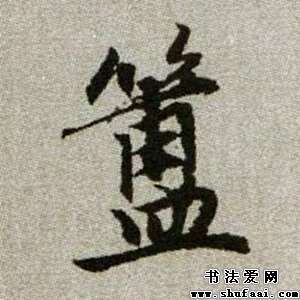 簠
书法爱网
www.shufaai.com